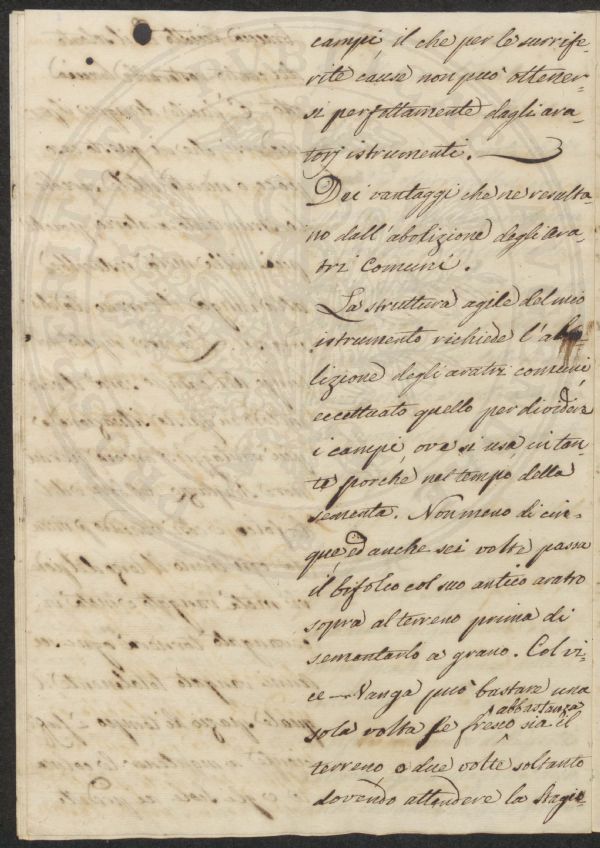 campi, il che per le surrife-
rite cause non può ottener-
si perfettamente dagli ara-
torj istrumenti.
Dei vantaggi che ne resulta-
no dall'abolizione degli ara-
tri comuni.
La struttura agile del mio
istrumento richiede l'abo-
lizione degli aratri comuni,
eccettuato quello per dividere
i campi, ove si usa, in tan-
te porche nel tempo della
sementa. Nonmeno di cin-
que, ed anche sei volte passa
il bifolco col suo antico aratro
sopra al terreno prima di
sementarlo a grano. Col vi-
ce-Vanga può bastare una
sola volta se fresco abbastanza sia il
terreno, o due volte soltanto
dovendo attendere la stagio-